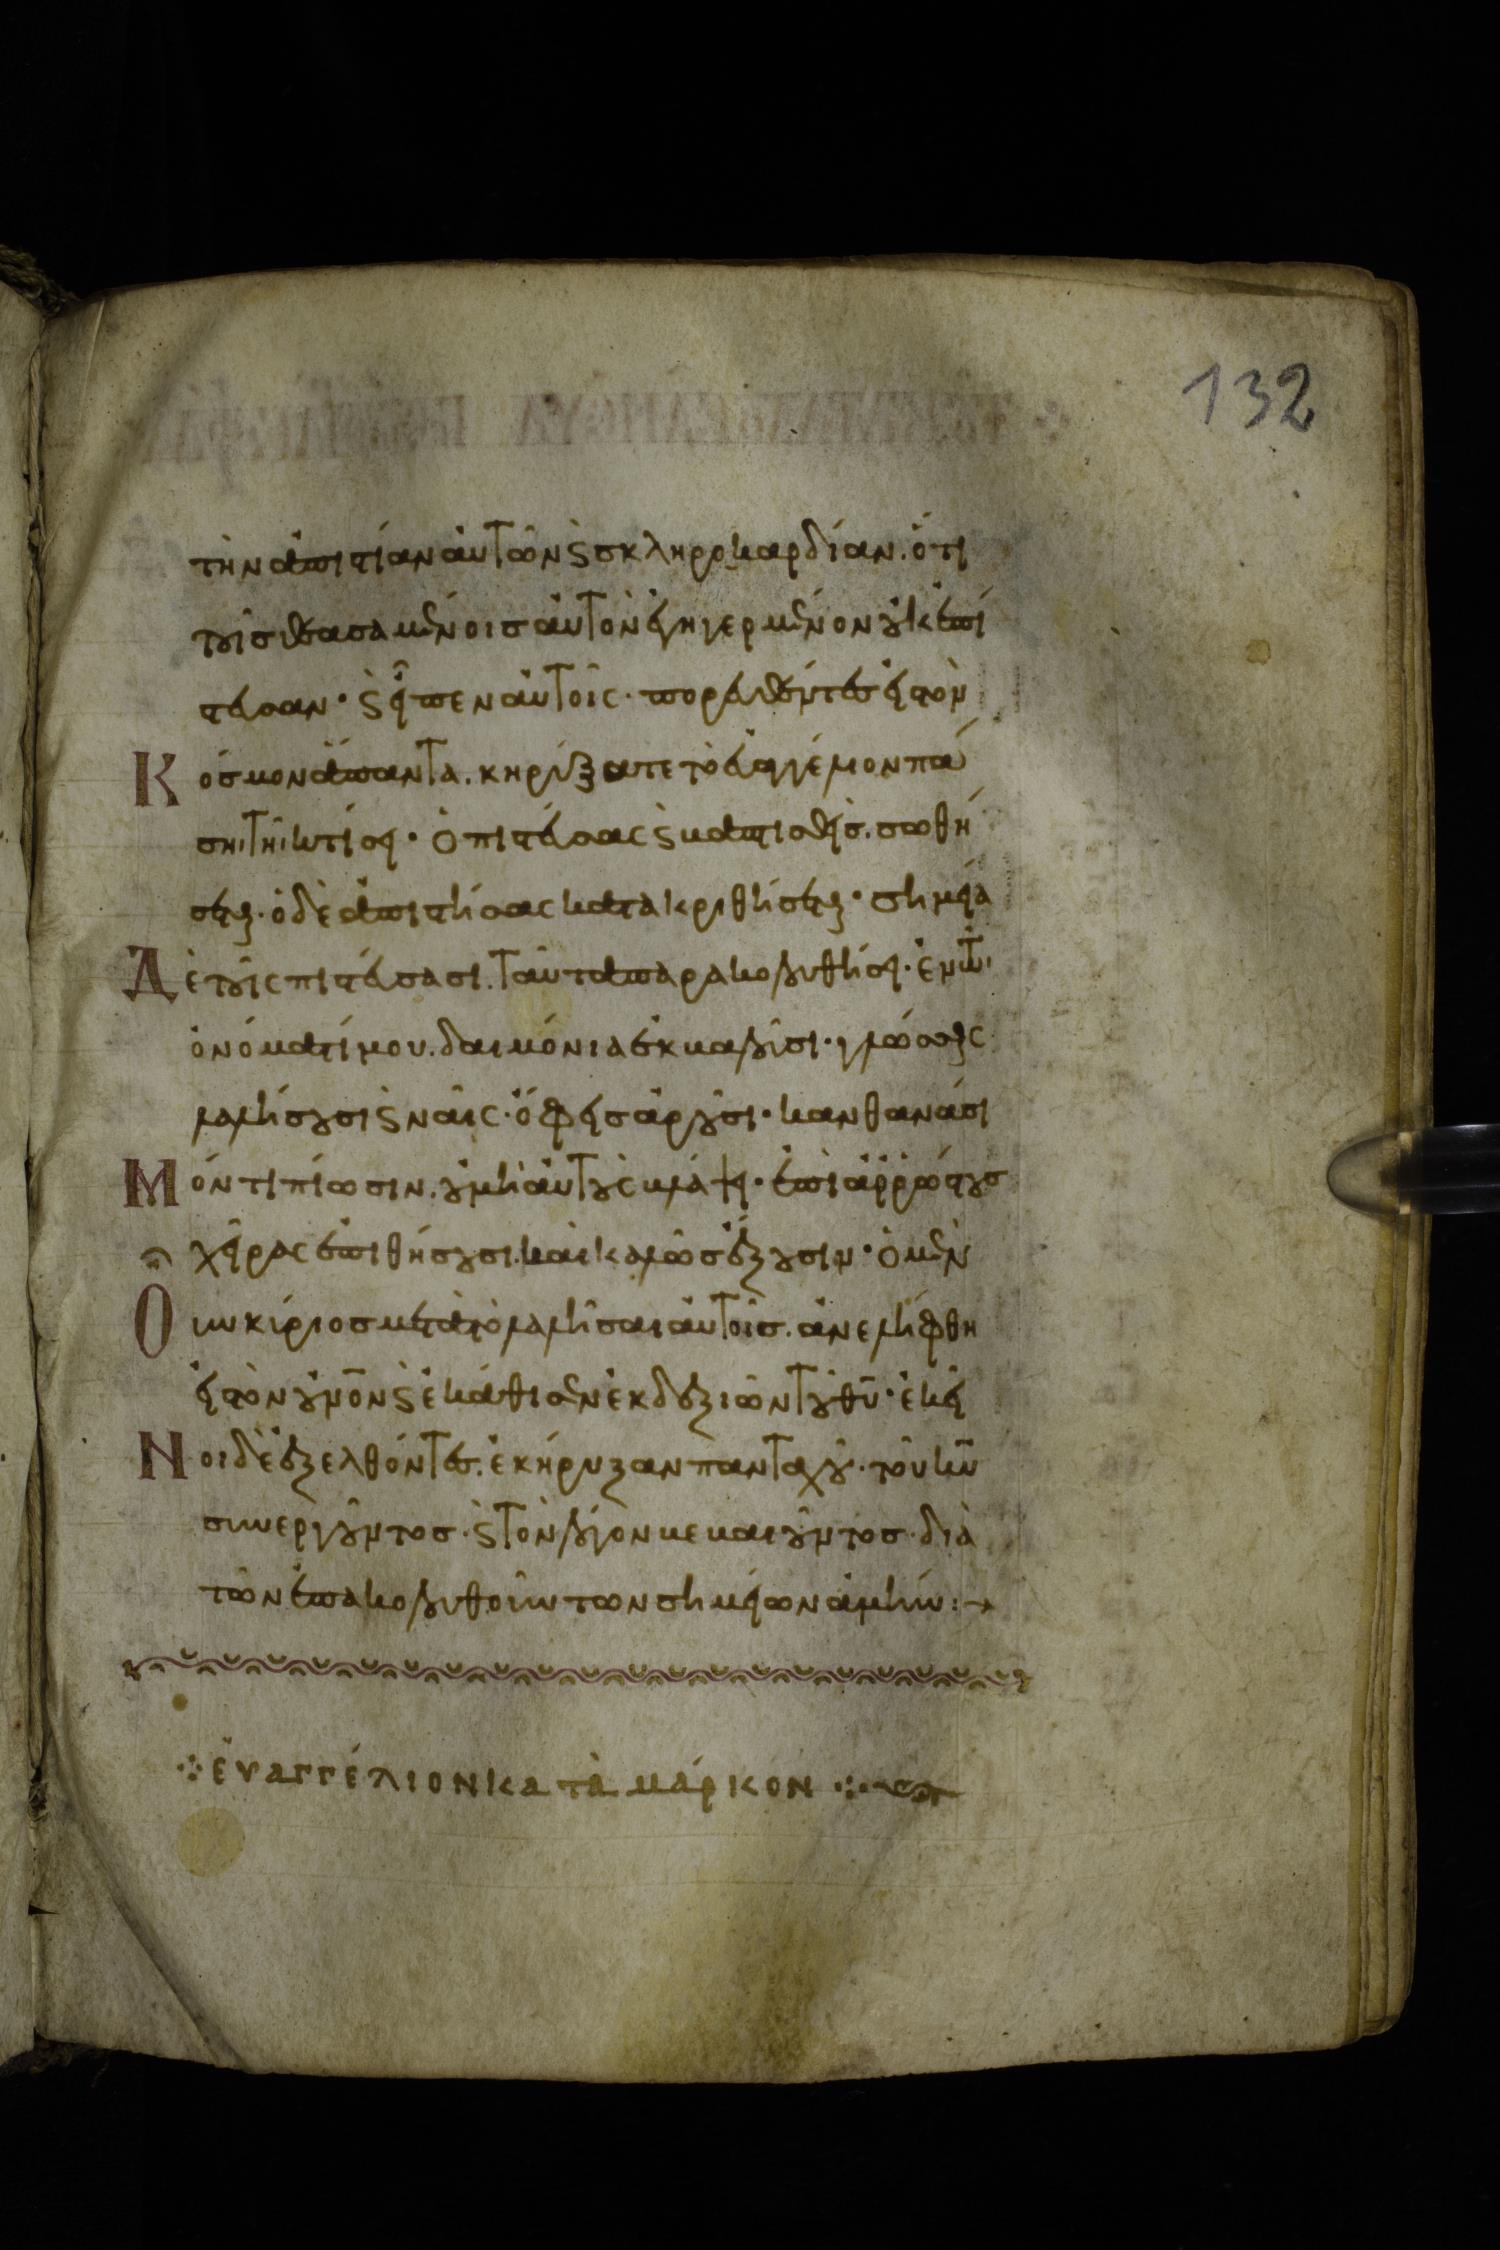 132
τὴν ἀπιστίαν αὐτῶν ϗ σκληροκαρδίαν. ὅτι
τοῖς θεασαμένοις αὐτὸν ἐγηγερμένον οὐκ ἐπί
στευσαν· ϗ εἶπεν αὐτοῖς· πορευθέντες εἰς τὸν
Κόσμον ἅπαντα. κηρύξατε τὸ εὐαγγέλιον πά
σῃ τῇ κτίσει· ὁ πιστεύσας ϗ βαπτισθεὶς. σωθή
σεται· ὁ δὲ ἀπιστήσας κατακριθήσεται· σημεῖα
Δὲ τοῖς πιστεύσασι. ταῦτα παρακολουθήσει· ἐν τῷ
ὀνόματί μου. δαιμόνια ἐκβαλοῦσι· γλώσσαις
λαλήσουσι καιναῖς· ὄφεις ἀροῦσι· κἂν θανάσι
Μόν τι πίωσιν. οὐ μὴ αὐτοὺς βλάψῃ· ἐπὶ ἀρρώστους
χεῖρας ἐπιθήσουσι. καὶ καλῶς ἕξουσιν· ὁ μὲν
Οὖν κύριος μετὰ τὸ λαλῆσαι αὐτοῖς. ἀνελήφθη
εἰς τὸν οὐνὸν ϗ ἐκάθισεν ἐκ δεξιῶν τοῦ θῦ· ἐκεῖ
Νοι δὲ ἐξελθόντες. ἐκήρυξαν πανταχοῦ· τοῦ κῦ
συνεργοῦντος· ϗ τὸν λόγον βεβαιοῦντος· διὰ
τῶν ἐπακολουθούντων σημείων ἀμήν:
εὐαγγέλιον κατὰ μάρκον